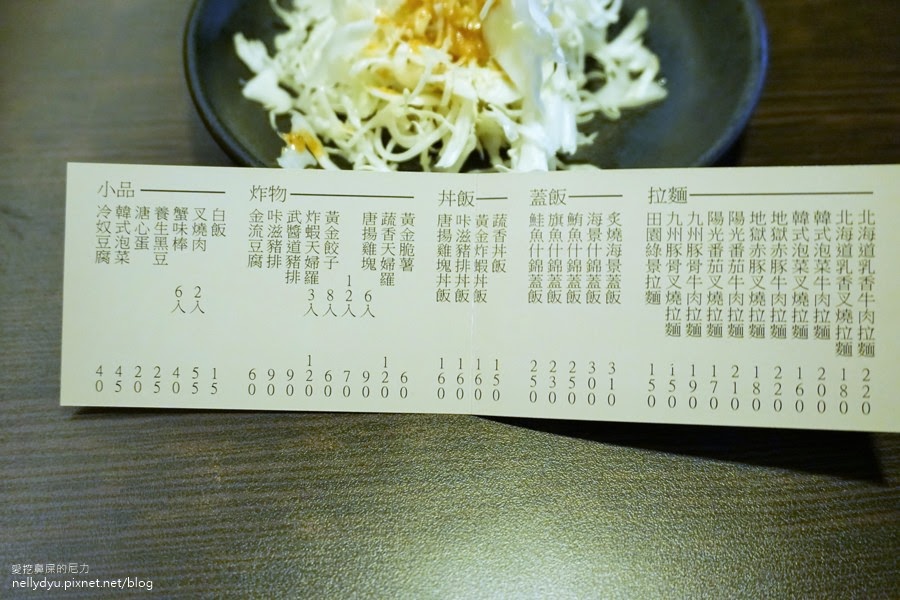 拉麵
北海道乳香牛肉拉麵 220
北海道乳香叉燒拉麵 180
韓式泡菜牛肉拉麵 200
韓式泡菜叉燒拉麵 160
地獄赤豚牛肉拉麵 220
地獄赤豚叉燒拉麵 180
陽光番茄牛肉拉麵 210
陽光番茄叉燒拉麵 170
九州豚骨牛肉拉麵 190
九州豚骨叉燒拉麵 150
田園綠景拉麵 150
蓋飯
炙燒海景蓋飯 310
海景什錦蓋飯 300
鮪魚什錦蓋飯 250
旗魚什錦蓋飯 230
鮭魚什錦蓋飯 250
丼飯
蔬香丼飯 150
黃金炸蝦丼飯 160
咔滋豬排丼飯 160
唐揚雞塊丼飯 160
炸物
黃金脆薯 60
蔬香天婦羅 120
唐揚雞塊 6入 90
12入 70
黃金餃子 8入 60
炸蝦天婦羅 3入 120
武醬道豬排 90
咔滋豬排 90
金流豆腐 60
小品
白飯 15
叉燒肉 2入 55
蟹味棒 6入 40
養生黑豆 25
溏心蛋 20
韓式泡菜 45
冷奴豆腐 40
愛挖鼻屎的尼力
nellydyu.pixnet.net/blog